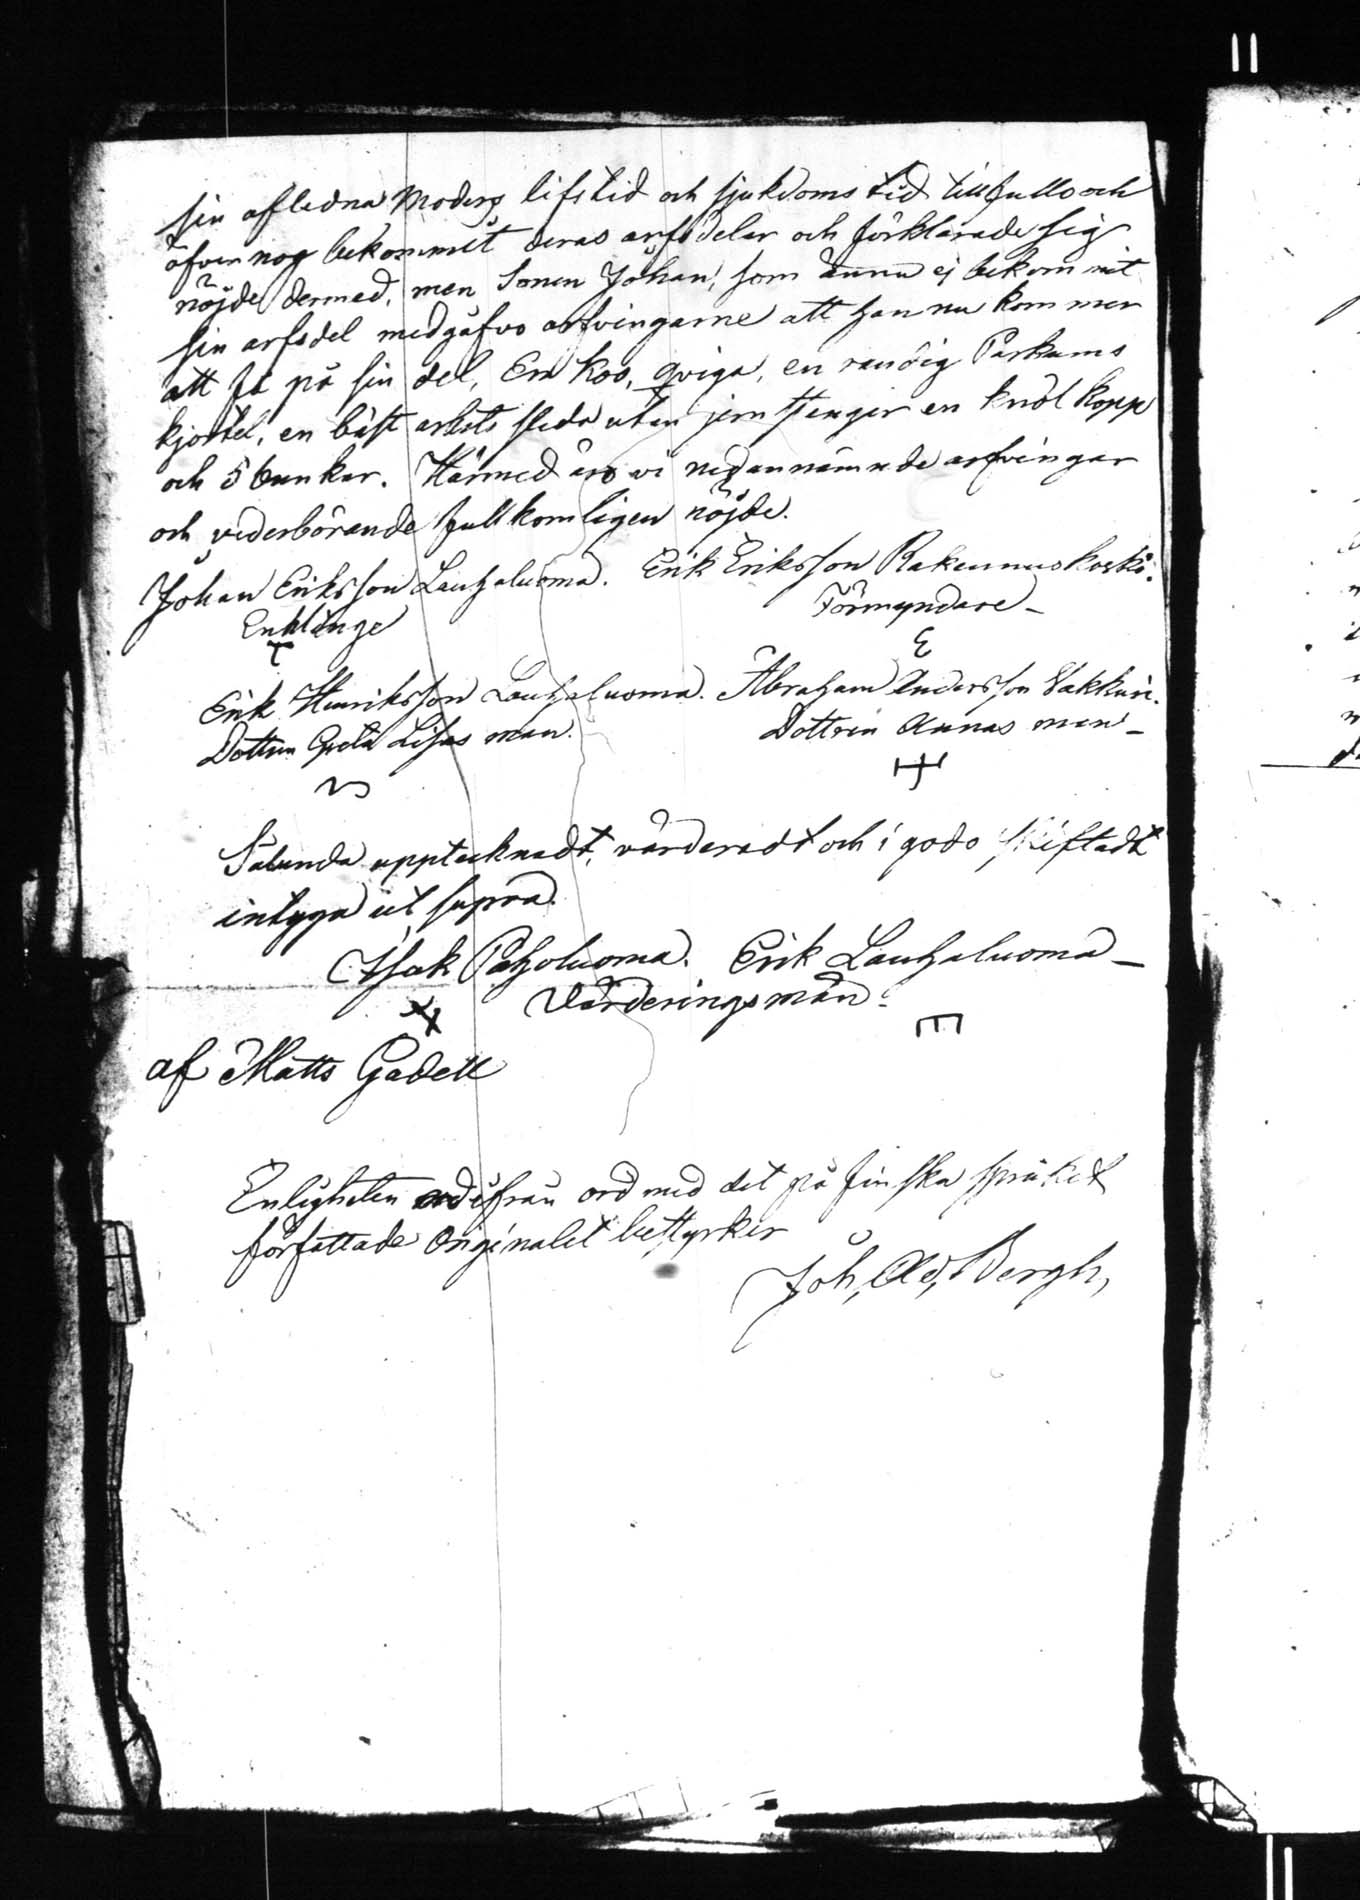 sin afledna Moders lifstid och sjukdoms tid tillfullo och
öfver nog bekommit deras arfsdelar och förklarade sig
nöjde dermed, men Sonen Johan, som ännu ej bekommit
sin arfsdel medgåfvo arfvingarne att han nu kommer
att få på sin del, En koo, qviga, en randig Parkums
kjortel, en bäst arbets släda utan jern stenger en knöl kopp
och 5 bunkar. Härmed äro vi nedannämnde arfvingar
och vederbörande fullkomligen nöjde.
Johan Eriksson Lauhaluoma. Erik Eriksson Rakennuskoski.
Enklinge Förmyndare
Erik Henriksson Lauhaluoma. Abraham Andersson Vakkuri.
Dottren Greta Lisas man. Dottren Annas man
Sålunda upptecknadt, värderadt och i godo skiftadt
intyga ut supra.
Isak Pahaluoma. Erik Lauhaluoma
Värderingsmän.
af Matts Gadell
Enligheten ord ifrån ord med det på finska språket
författade Originalet bestyrker
Joh, Ad, Bergh,